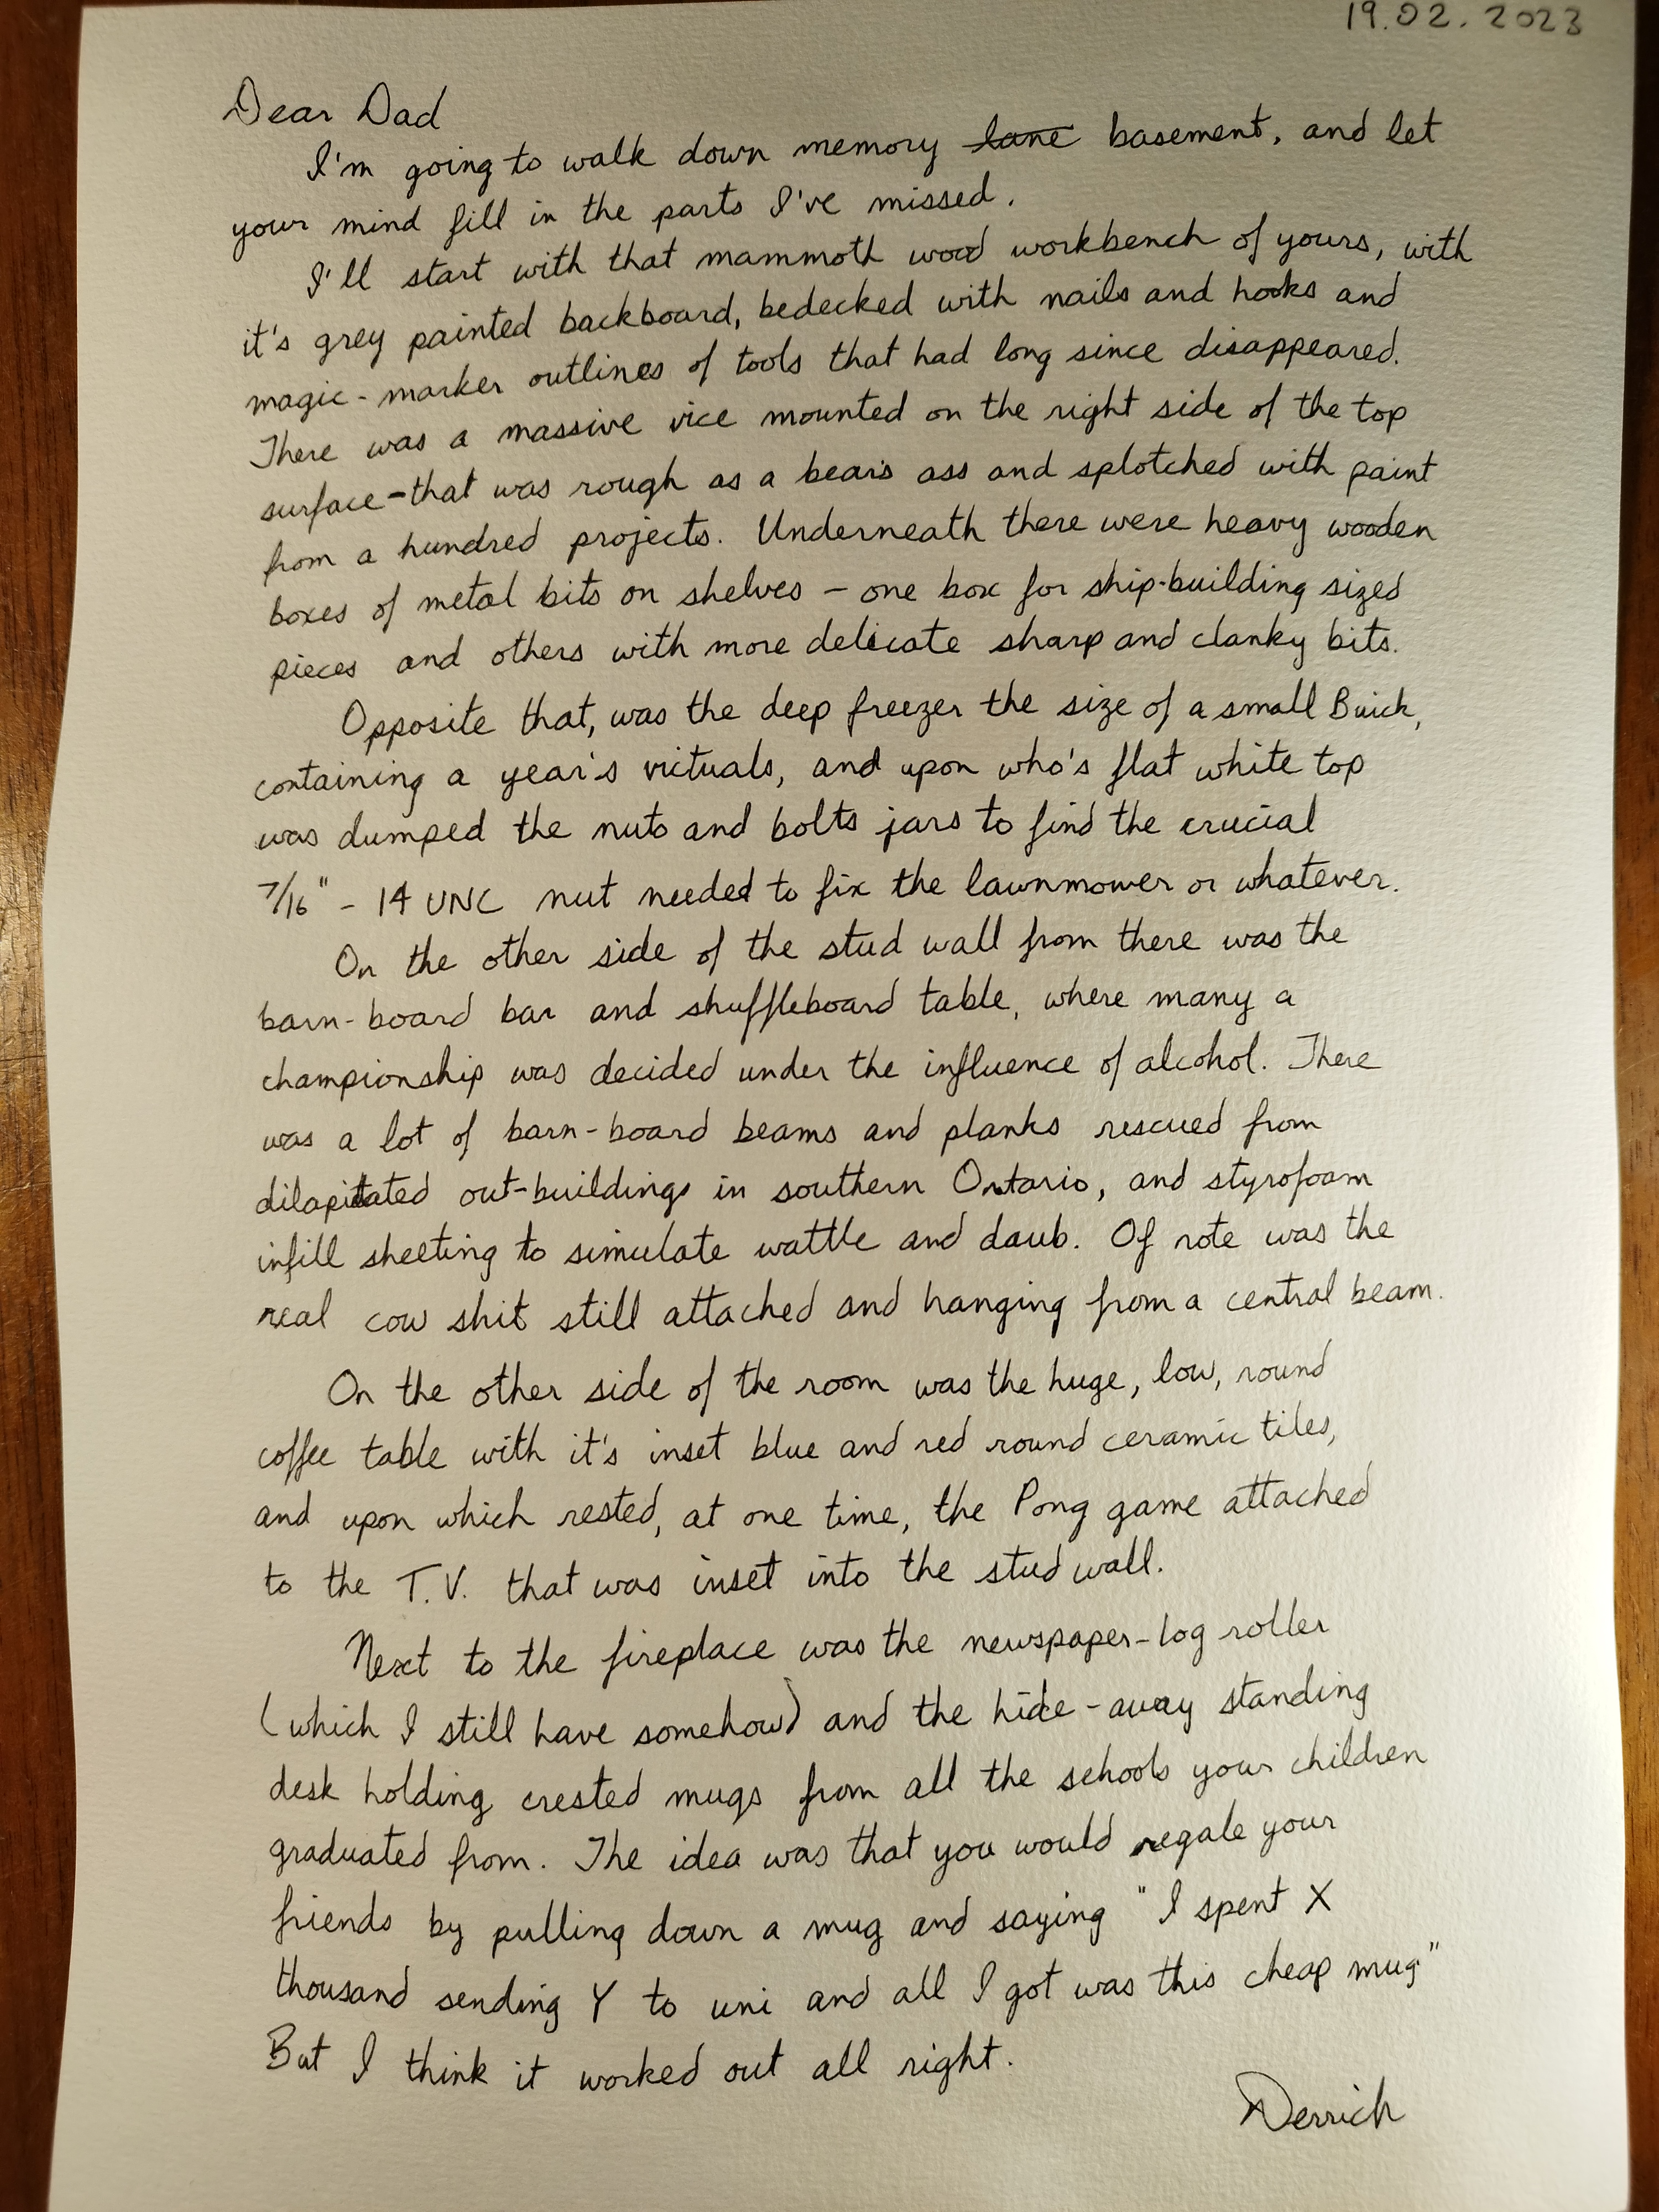 19.02.2023
Dear Dad
I'm going to walk down memory ~~lane~~ basement, and let
your mind fill in the parts I've missed.
I'll start with that mammoth wood workbench of yours, with
it's grey painted backboard, bedecked with nails and hooks and
magic-marker outlines of tools that had long since disappeared.
There was a massive vice mounted on the right side of the top
surface - that was rough as a bear's ass and splotched with paint
from a hundred projects. Underneath there were heavy wooden
boxes of metal bits on shelves - one box for ship-building sized
pieces and others with more delicate sharp and clanky bits.
Opposite that, was the deep freezer the size of a small Buick,
containing a year's victuals, and upon who's flat white top
was dumped the nuts and bolts jars to find the crucial
7/16" - 14 UNC nut needed to fix the lawnmower or whatever.
On the other side of the stud wall from there was the
barn-board bar and shuffleboard table, where many a
championship was decided under the influence of alcohol. There
was a lot of barn-board beams and planks rescued from
dilapitated out-buildings in southern Ontario, and styrofoam
infill sheeting to simulate wattle and daub. Of note was the
real cow shit still attached and hanging from a central beam.
On the other side of the room was the huge, low, round
coffee table with it's inset blue and red round ceramic tiles,
and upon which rested, at one time, the Pong game attached
to the T.V. that was inset into the stud wall.
Next to the fireplace was the newspaper-log roller
(which I still have somehow) and the hide-away standing
desk holding crested mugs from all the schools your children
graduated from. The idea was that you would regale your
friends by pulling down a mug and saying "I spent X
thousand sending Y to uni and all I got was this cheap mug"
But I think it worked out all right.
Derrick